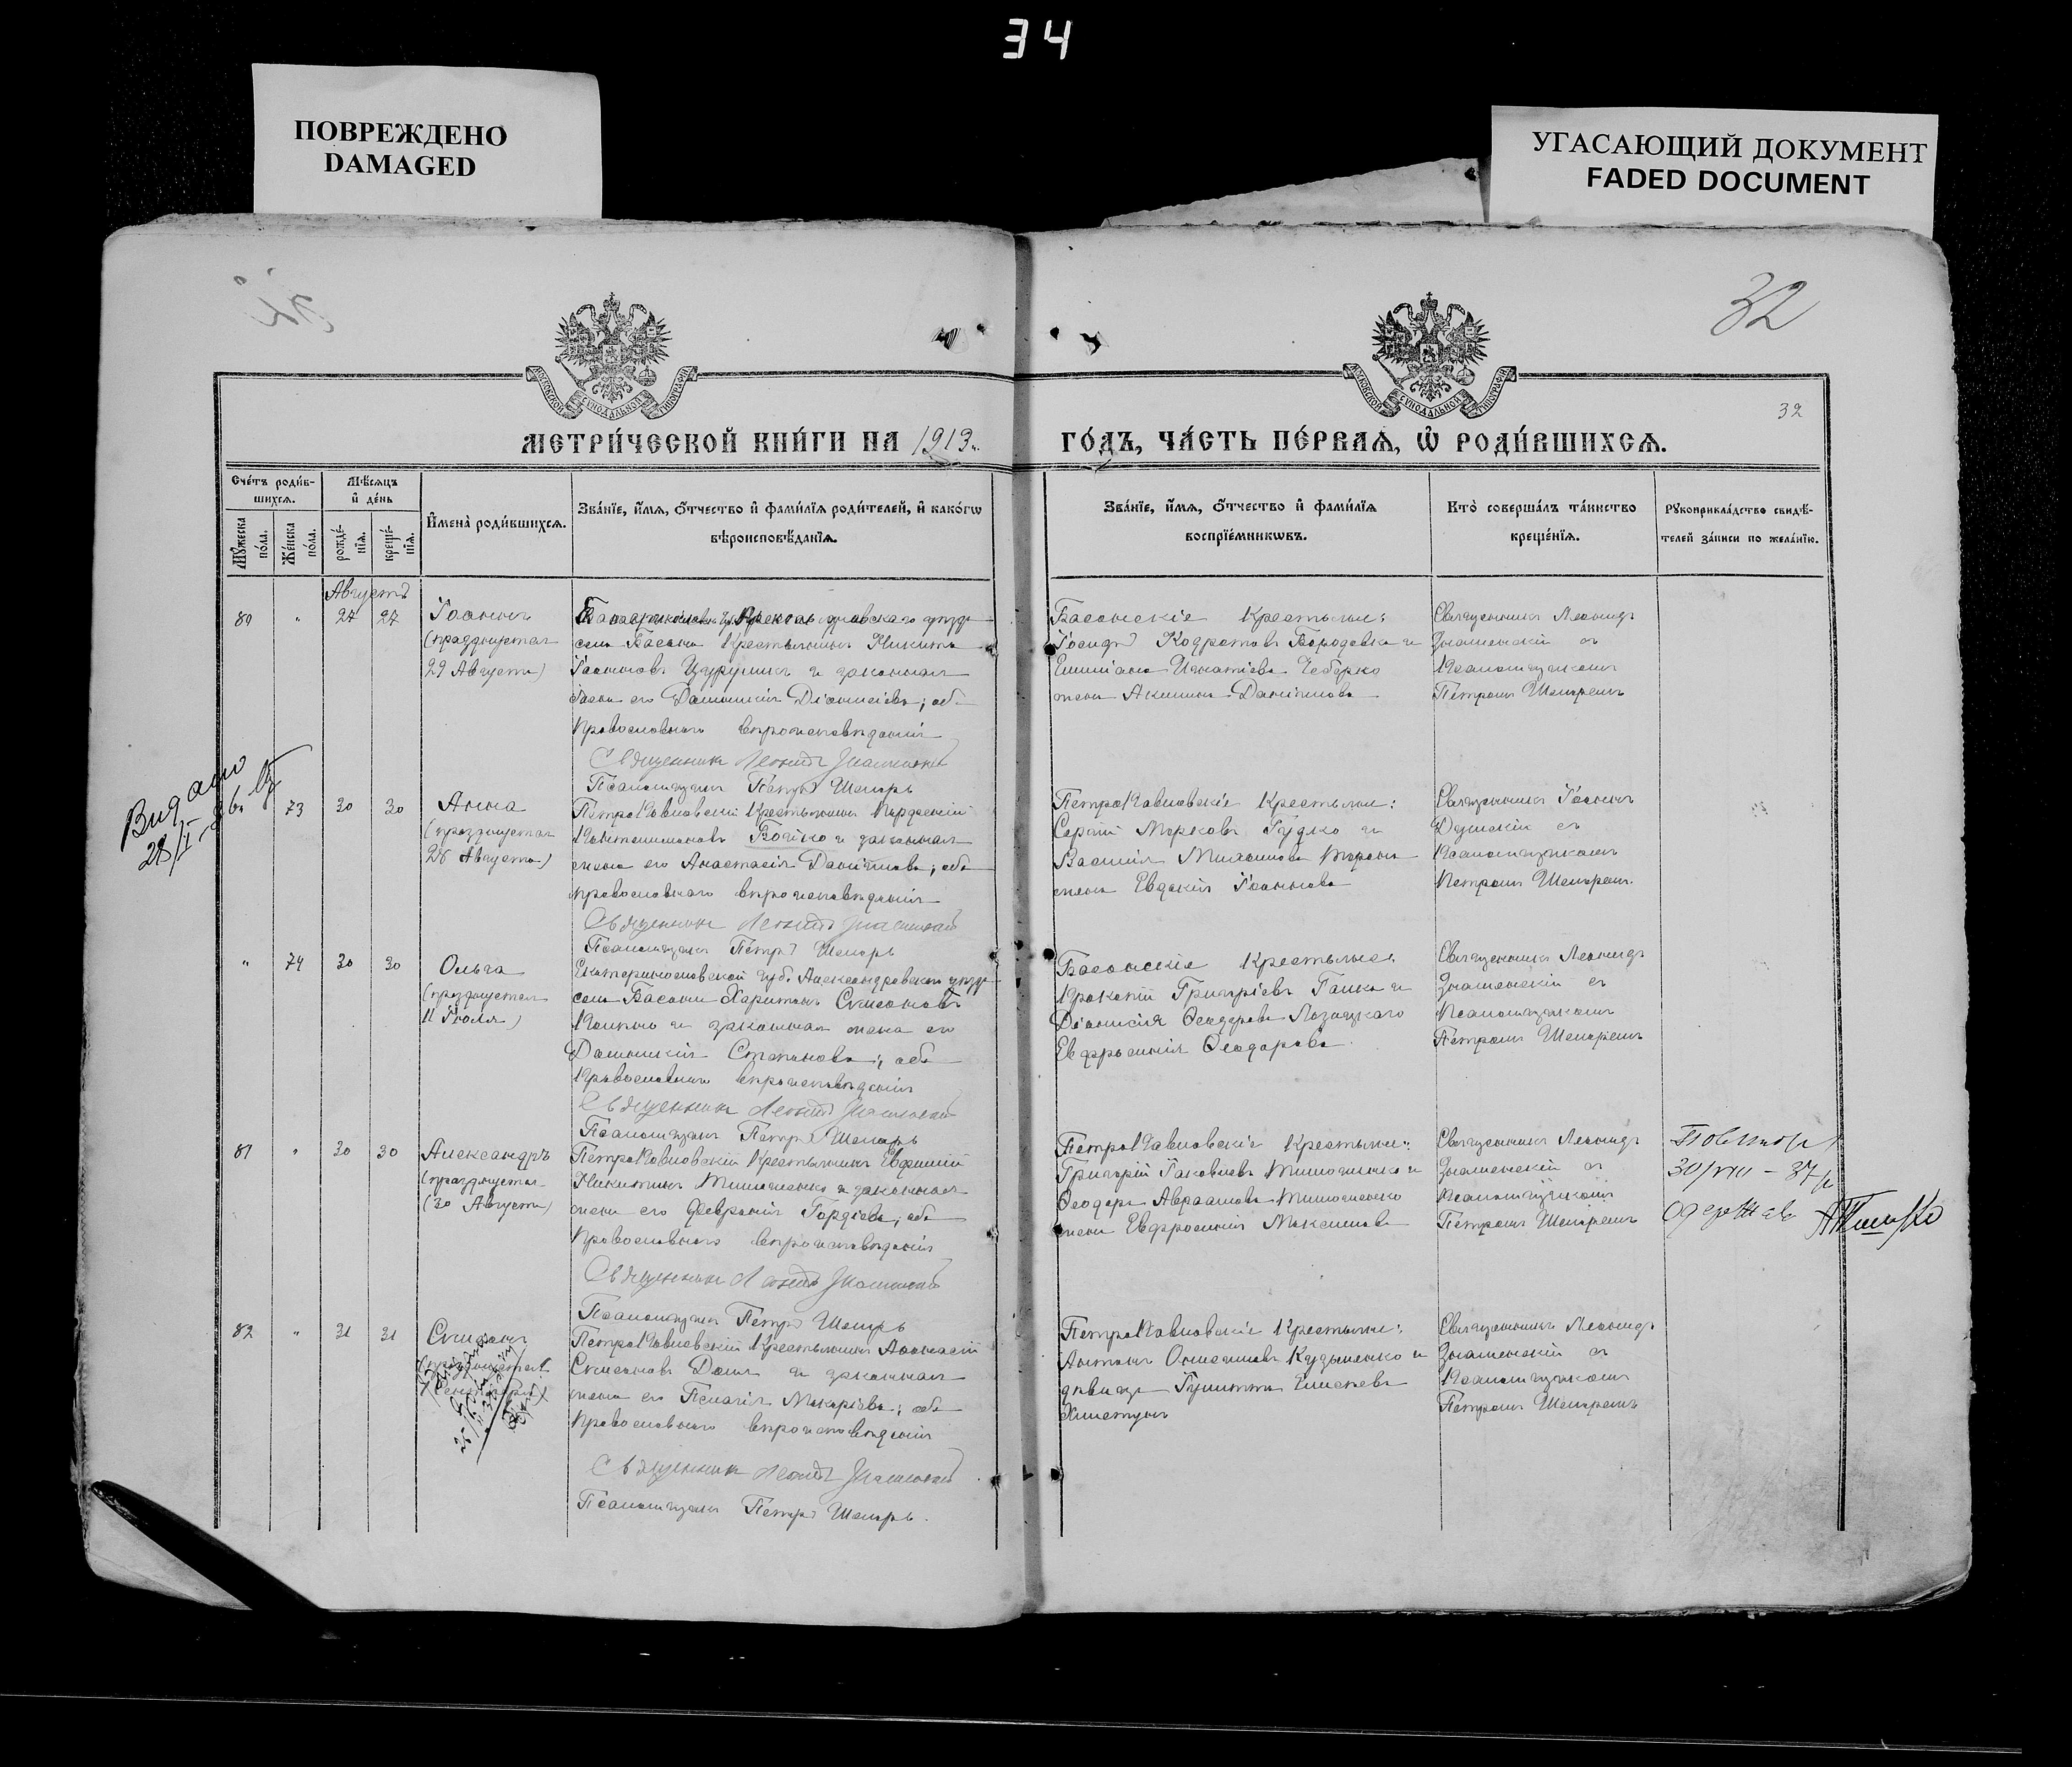 34
ПОВРЕЖДЕНО
DAMAGED
УГАСАЮЩИЙ ДОКУМЕНТ
FADED DOCUMENT
32
32
МЕТРИ́ЧЕСКОЙ КНИ́ГИ НА 1913 г.
ГО́ДЪ, ЧА́СТЬ ПЕ́РВАѦ, Ѽ РОДИ́ВШИХСѦ.
Сче́тъ роди́в-
шихсѧ.
Мѣ́сѧцъ
и҆ де́нь
Мꙋ́жеска
по́ла.
Же́нска
по́ла.
рожде́-
нїѧ.
креще́-
нїѧ.
И҆мена̀ роди́вшихсѧ.
Зва́нїе, и҆́мѧ, ѻ҆́тчество и҆ фами́лїѧ роди́телей, и҆ како́гѡ
вѣроисповѣ́данїѧ.
Зва́нїе, и҆́мѧ, ѻ҆́тчество и҆ фами́лїѧ
воспрїе́мникѡвъ.
Кто̀ соверша́лъ та́инство
креще́нїѧ.
Рꙋкоприкла́дство свидѣ́-
телей за́писи по жела́нїю.
Августъ
80 " 27 27
Іоаннъ
(празднуется
29 Августа)
села Басани Крестьянинъ Никита
Іоанновъ и законная
жена его Домникія Діонисіева; оба
Православнаго вѣроисповѣданія
Священникъ Леонидъ Знаменскій
Псаломщикъ Петръ Шепарь
Басанскіе Крестьяне:
Іосифъ Кодратовъ Бородавка и
Игнатіева Чеберко
жена Акилина Даніилова
Священникъ Леонидъ
Знаменскій съ
Псаломщикомъ
Петромъ Шепаремъ
Видано
28/II
73 30 30
Анна
(празднуется
28 Августа)
ПетроПавловскій Крестьянинъ Порфирій
Бойко и законная
жена его Анастасія Даніилова; оба
православнаго вѣроисповѣданія
Священникъ Леонидъ Знаменскій
Псаломщикъ Петръ Шепарь
ПетроПавловскіе Крестьяне:
Сергій Марковъ Гудко и
Василія Михаилова
жена Евдокія Іоаннова
Священникъ Іоаннъ
съ
Псаломщикомъ
Петромъ Шепаремъ.
" 74 30 30
Ольга
(празднуется
11 Іюля)
Екатеринославской губ. Александровскаго уѣзда
села Басани Харитонъ Симоновъ
и законная жена его
Домникія Степанова; оба
Православнаго вѣроисповѣданія
Священникъ Леонидъ Знаменскій
Псаломщикъ Петръ Шепарь
Басанскіе Крестьяне:
Прокопій Григорьевъ и
Діонисія Ѳеодорова Лозицкаго
Евфросинія Ѳеодорова.
Священникъ Леонидъ
Знаменскій съ
Псаломщикомъ
Петромъ Шепаремъ
81 " 30 30
Александръ
(празднуется
(30 Августа)
ПетроПавловскій Крестьянинъ Евфимій
Никитинъ Тимошенко и законная
жена его Февронія Гордіева; оба
Православнаго вѣроисповѣданія
Священникъ Леонидъ Знаменскій
Псаломщикъ Петръ Шепарь
ПетроПавловскіе Крестьяне:
Григорій Іаковлевъ Тимошенко и
Ѳеодора Авраамова Тимошенко
жена Евфросинія Максимова
Священникъ Леонидъ
Знаменскій съ
Псаломщикомъ
Петромъ Шепаремъ
30/VIII - 37 р
одержав
82 " 31 31
Симеонъ
(празднуется
ПетроПавловскій Крестьянинъ Аѳанасій
Симеоновъ и законная
жена его Пелагія Макаріева; оба
Православнаго вѣроисповѣданія
Священникъ Леонидъ Знаменскій
Псаломщикъ Петръ Шепарь.
ПетроПавловскіе Крестьяне:
Антонъ Кузьменко и
дѣвица
Священникъ Леонидъ
Знаменскій съ
Псаломщикомъ
Петромъ Шепаремъ